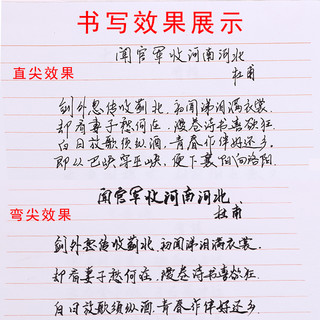 书写效果展示
闻官军收河南河北
直尖效果
杜甫
剑外忽传收蓟北,初闻涕泪满衣裳.
却看妻子愁何在,漫卷诗书喜欲狂.
白日放歌须纵酒,青春作伴好还乡.
即从巴峡穿巫峡,便下襄阳向洛阳.
闻官军收河南河北
弯尖效果
杜甫
剑外忽传收蓟北,初闻涕泪满衣裳.
却看妻子愁何在,漫卷诗书喜欲狂.
白日放歌须纵酒,青春作伴好还乡.